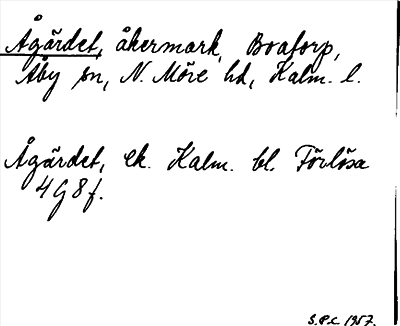 Ågärdet, åkermark, Boatorp,
Åby sn, N. Möre hd, Kalm. l.
Ågärdet, ek. Kalm. bl. Förlösa
4G8f.
S.P.C. 1957.